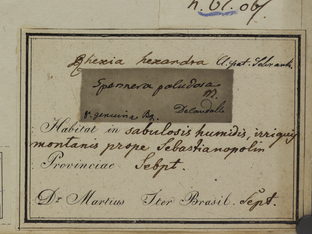 Rhexia hexandra
Spennera paludosa
genuina
Delandole
Habitat in sabulosis humidis, irriguis
montanis prope Sebastianopolin
Provinciae Sebpt.
Dr Martius Iter Brasil. Sept.